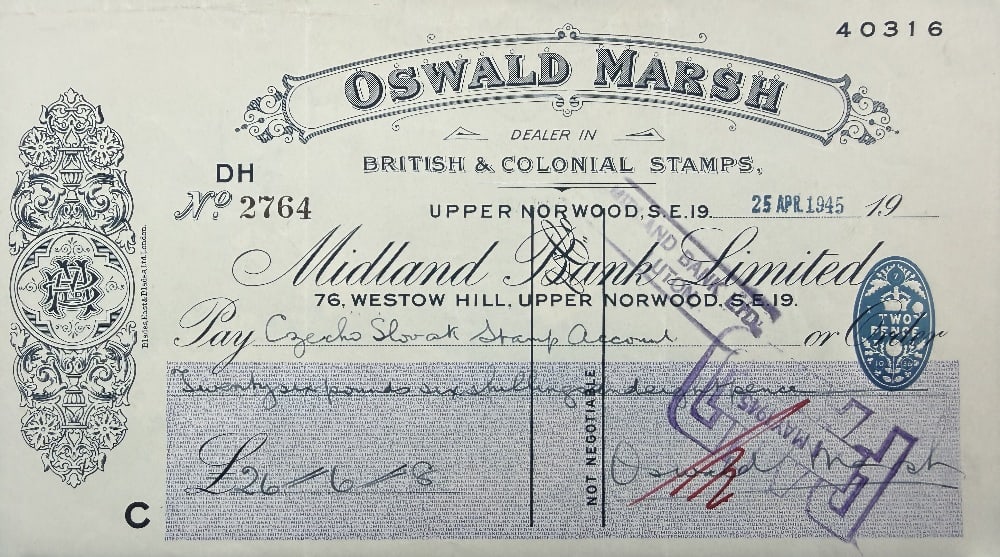 40316
OSWALD MARSH
DEALER IN
BRITISH & COLONIAL STAMPS,
DH
No 2764
UPPER NORWOOD, S.E.19. 25 APR. 1945 19
Midland Bank Limited
76, WESTOW HILL, UPPER NORWOOD, S.E.19.
Pay Czecho Slovak Stamp Account or Order
TWO PENCE
Twenty six pounds six shillings pence
£26 / 6 / 8
NOT NEGOTIABLE
Oswald Marsh
C
Blades, East & Blades Ltd. London.
MIDLAND BANK LTD.
MAY 1945